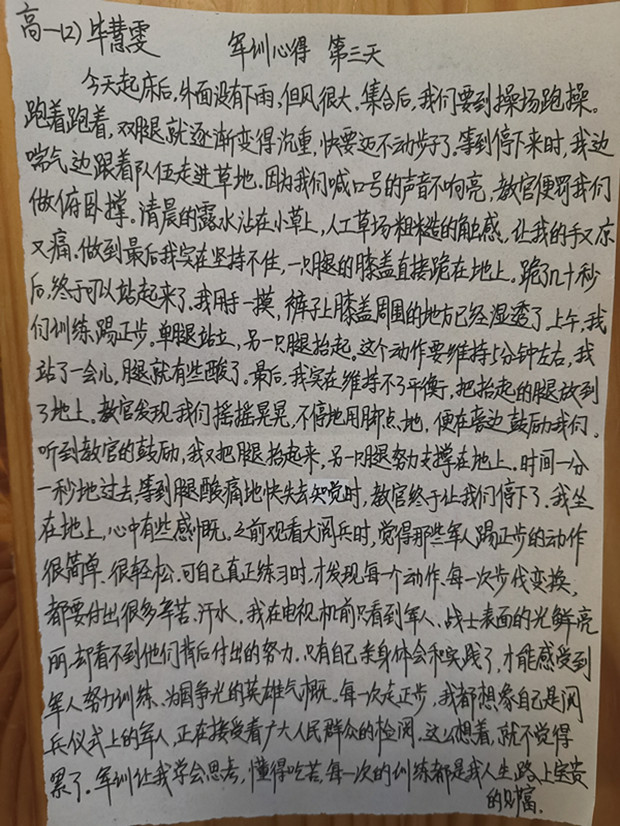 高一(2) 毕慧雯
军训心得 第三天
今天起床后,外面没有下雨,但风很大。集合后,我们要到操场跑操。
跑着跑着,双腿就逐渐变得沉重,快要迈不动步子了。等到停下来时,我边
喘气边跟着队伍走进草地。因为我们喊口号的声音不响亮,教官便罚我们
做俯卧撑。清晨的露水沾在小草上,人工草场粗糙的触感,让我的手又凉
又痛。做到最后我实在坚持不住,一只腿的膝盖直接跪在地上。跪了几十秒
后,终于可以站起来了。我用手一摸,裤子上膝盖周围的地方已经湿透了。上午,我
们训练踢正步。单腿站立,另一只腿抬起。这个动作要维持5分钟左右,我
站了一会儿,腿就有些酸了。最后,我实在维持不了平衡,把抬起的腿放到
了地上。教官发现我们摇摇晃晃,不停地用脚点地,便在旁边鼓励我们。
听到教官的鼓励,我又把腿抬起来,另一只腿努力支撑在地上。时间一分
一秒地过去,等到腿酸痛地快失去知觉时,教官终于让我们停下了。我坐
在地上,心中有些感慨。之前观看大阅兵时,觉得那些军人踢正步的动作
很简单、很轻松。可自己真正练习时,才发现每一个动作、每一次步伐变换,
都要付出很多辛苦、汗水。我在电视机前只看到军人、战士表面的光鲜亮
丽,却看不到他们背后付出的努力。只有自己亲身体会和实践了,才能感受到
军人努力训练、为国争光的英雄气概。每一次走正步,我都想象自己是阅
兵仪式上的军人,正在接受着广大人民群众的检阅。这么想着,就不觉得
累了。军训让我学会思考,懂得吃苦,每一次的训练都是我人生路上宝贵
的财富.